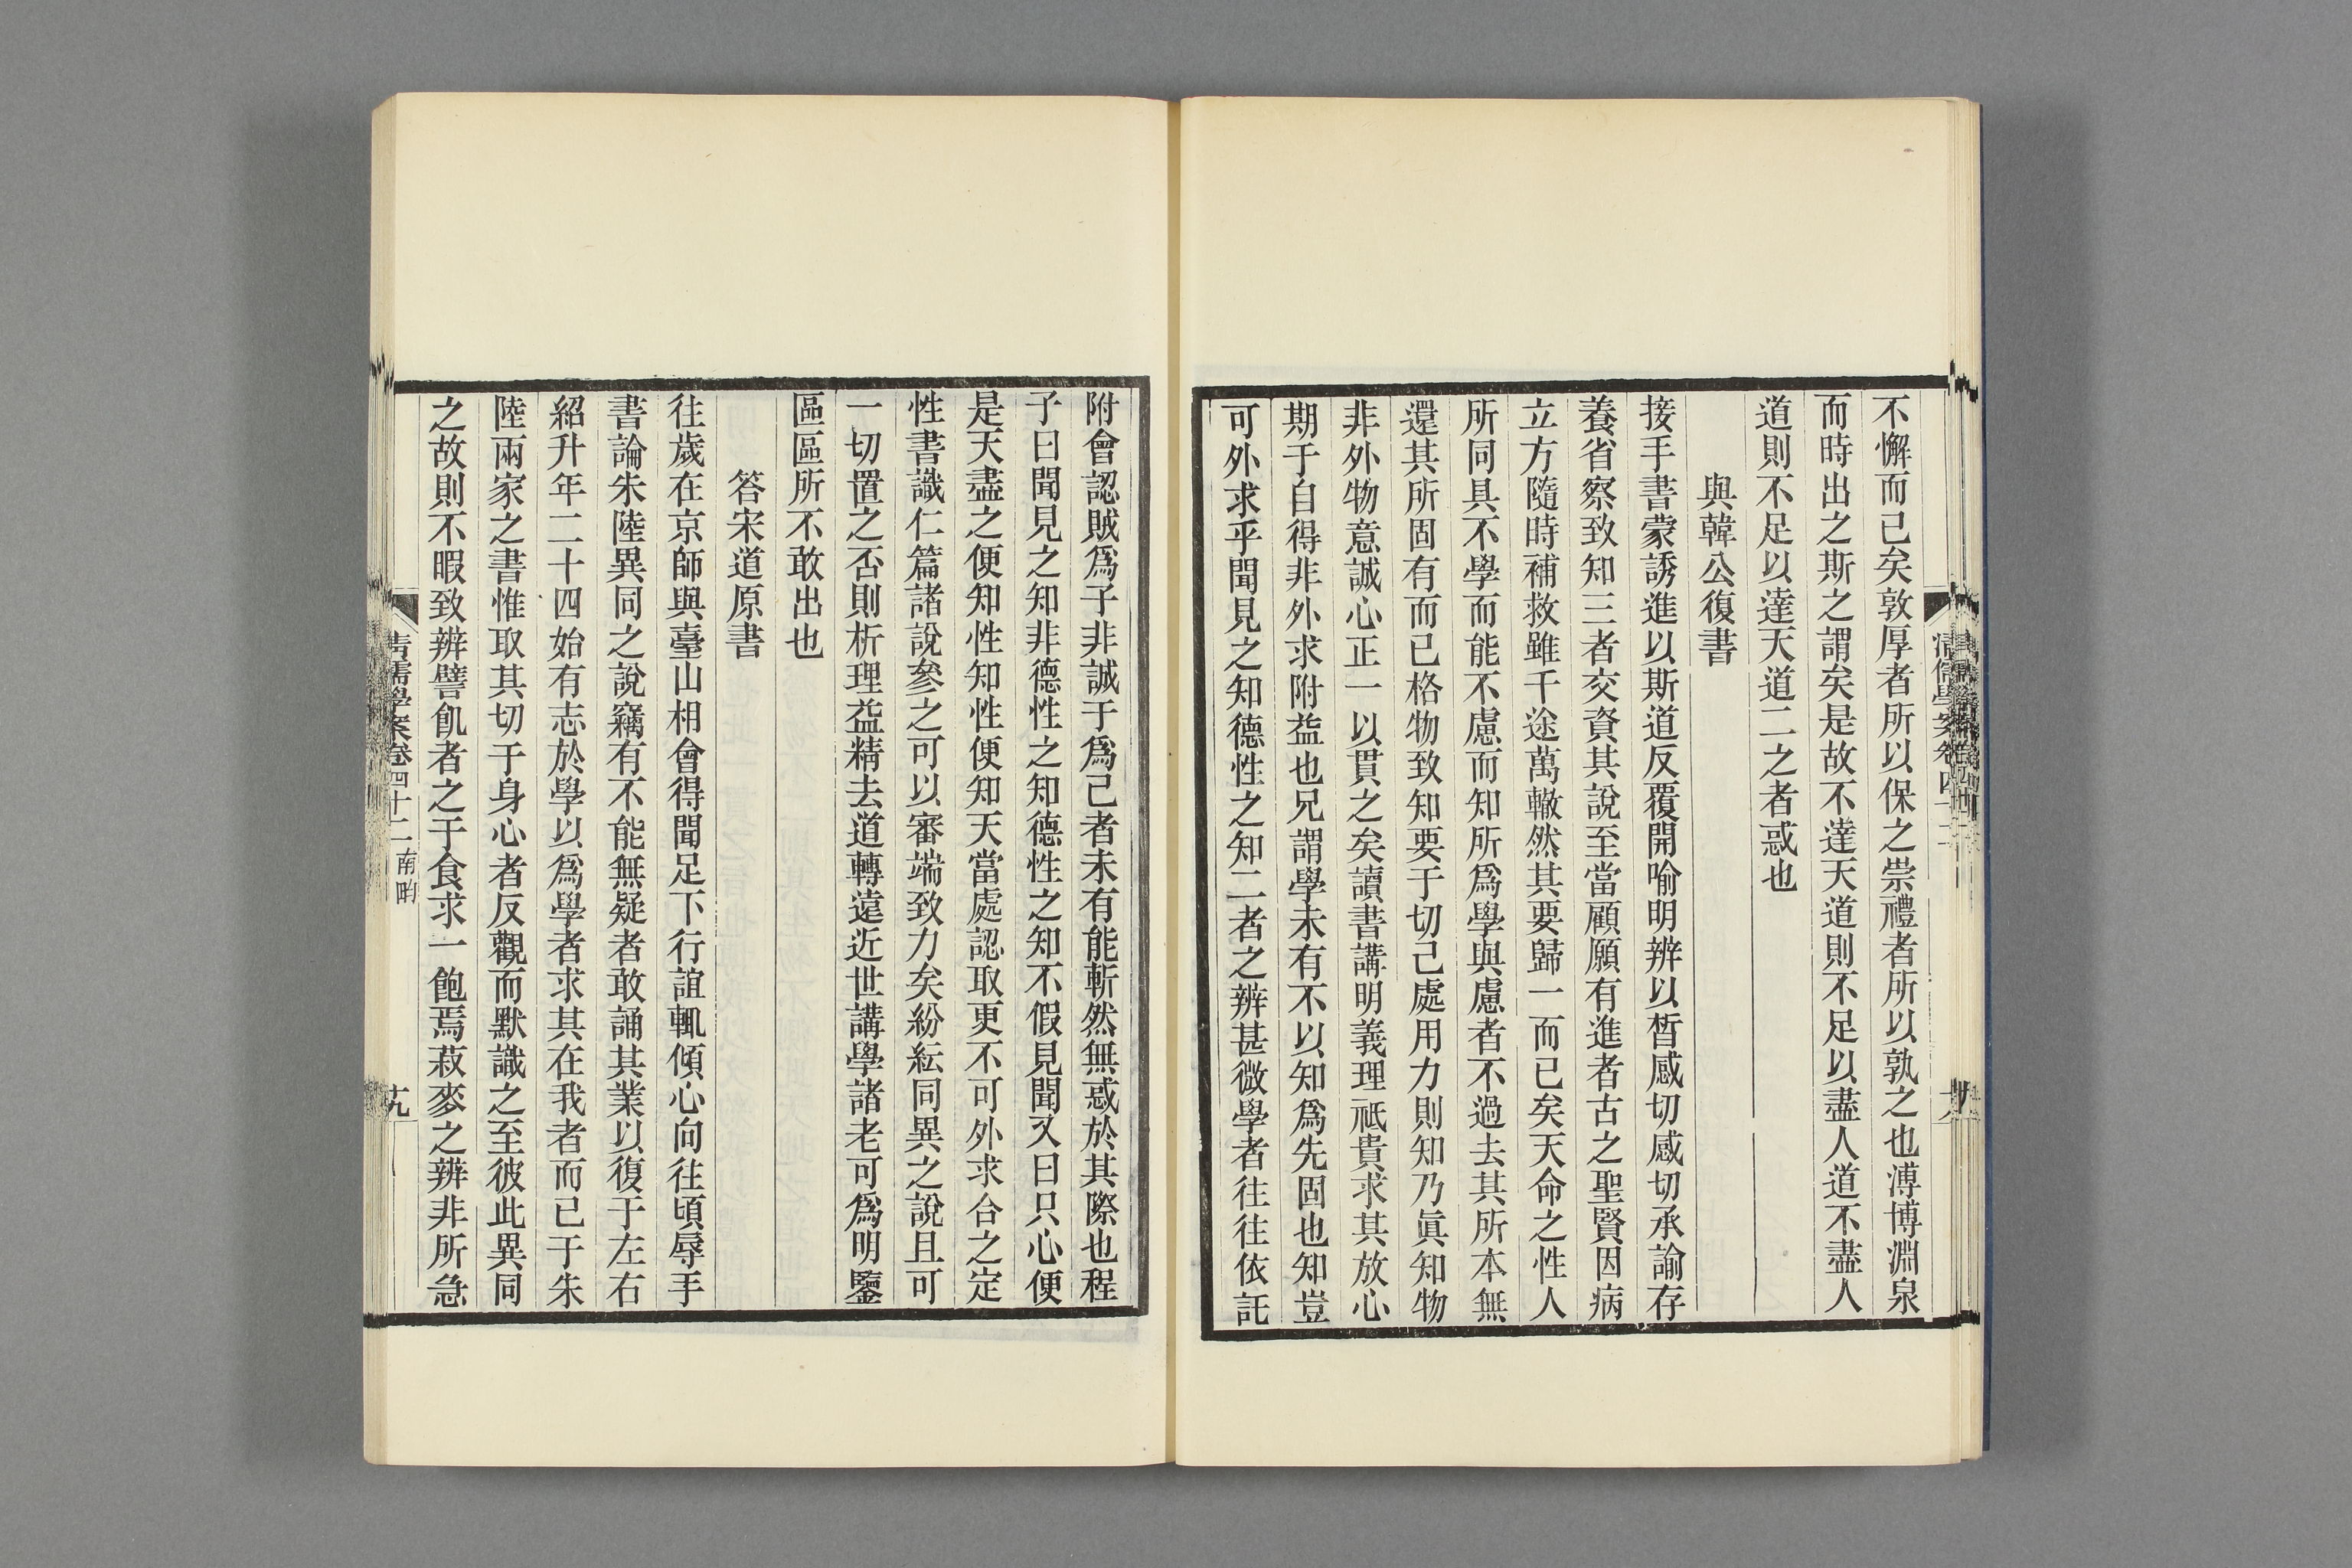 不懈而已矣敦厚者所以保之崇禮者所以孰之也溥博淵泉
而時出之斯之謂矣是故不達天道則不足以盡人道不盡人
道則不足以達天道二之者惑也
與韓公復書
接手書蒙誘進以斯道反覆開喻明辨以晢感切感切承諭存
養省察致知三者交資其說至當顧願有進者古之聖賢因病
立方隨時補救雖千途萬轍然其要歸一而已矣天命之性人
所同具不學而能不慮而知所爲學與慮者不過去其所本無
還其所固有而已格物致知要于切己處用力則知乃眞知物
非外物意誠心正一以貫之矣讀書講明義理祇貴求其放心
期于自得非外求附益也兄謂學未有不以知爲先固也知豈
可外求乎聞見之知德性之知二者之辨甚微學者往往依託
附會認賊爲子非誠于爲己者未有能斬然無惑於其際也程
子曰聞見之知非德性之知德性之知不假見聞又曰只心便
是天盡之便知性知性便知天當處認取更不可外求合之定
性書識仁篇諸說參之可以審端致力矣紛紜同異之說且可
一切置之否則析理益精去道轉遠近世講學諸老可爲明鑒
區區所不敢出也
答宋道原書
往歲在京師與臺山相會得聞足下行誼輒傾心向往頃辱手
書論朱陸異同之說竊有不能無疑者敢誦其業以復于左右
紹升年二十四始有志於學以爲學者求其在我者而已于朱
陸兩家之書惟取其切于身心者反觀而默識之至彼此異同
之故則不暇致辨譬飢者之于食求一飽焉菽麥之辨非所急
清儒學案卷四十二南畇
十九